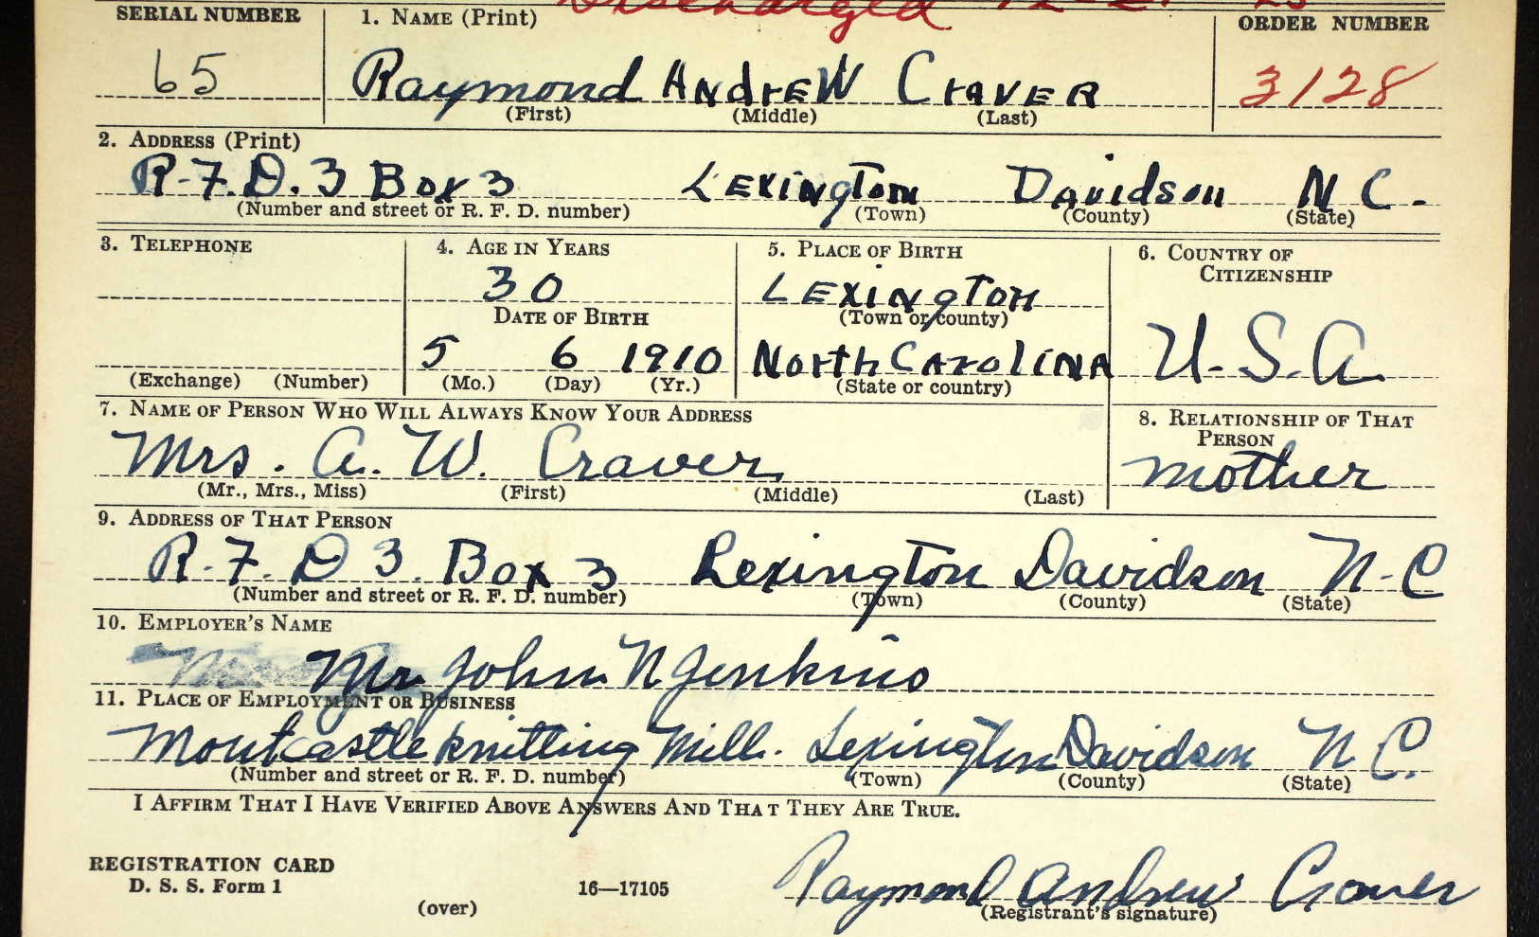 Discharged 12-2
SERIAL NUMBER 1. NAME (Print) ORDER NUMBER
65 Raymond ANdrEW CrAVER 3128
(First) (Middle) (Last)
2. ADDRESS (Print)
R.F.D. 3 Box 3 LExiNgTon DAvidson N.C.
(Number and street or R. F. D. number) (Town) (County) (State)
3. TELEPHONE 4. AGE IN YEARS 5. PLACE OF BIRTH 6. COUNTRY OF
CITIZENSHIP
30 LExiNgToN
DATE OF BIRTH (Town or county)
5 6 1910 NorTh CArolINA U.S.A.
(Exchange) (Number) (Mo.) (Day) (Yr.) (State or country)
7. NAME OF PERSON WHO WILL ALWAYS KNOW YOUR ADDRESS 8. RELATIONSHIP OF THAT
PERSON
Mrs. A. W. Craver mother
(Mr., Mrs., Miss) (First) (Middle) (Last)
9. ADDRESS OF THAT PERSON
R.F.D 3. Box 3 Lexington Davidson N-C
(Number and street or R. F. D. number) (Town) (County) (State)
10. EMPLOYER'S NAME
Mr John N Jenkins
11. PLACE OF EMPLOYMENT OR BUSINESS
Mountcastle knitting Mill. Lexington Davidson N.C.
(Number and street or R. F. D. number) (Town) (County) (State)
I AFFIRM THAT I HAVE VERIFIED ABOVE ANSWERS AND THAT THEY ARE TRUE.
REGISTRATION CARD
D. S. S. Form 1 16—17105 Raymond Andrew Craver
(over) (Registrant's signature)